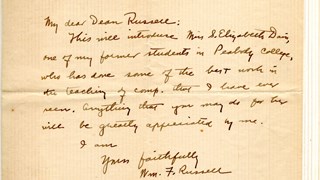 My dear Dean Russell:
This will introduce Miss S. Elizabeth Davis,
one of my former students in Peabody College,
who has done some of the best work in
the teaching of comp. that I have ever
seen. Anything that you may do for her
will be greatly appreciated by me.
I am
Yours faithfully
Wm. F. Russell